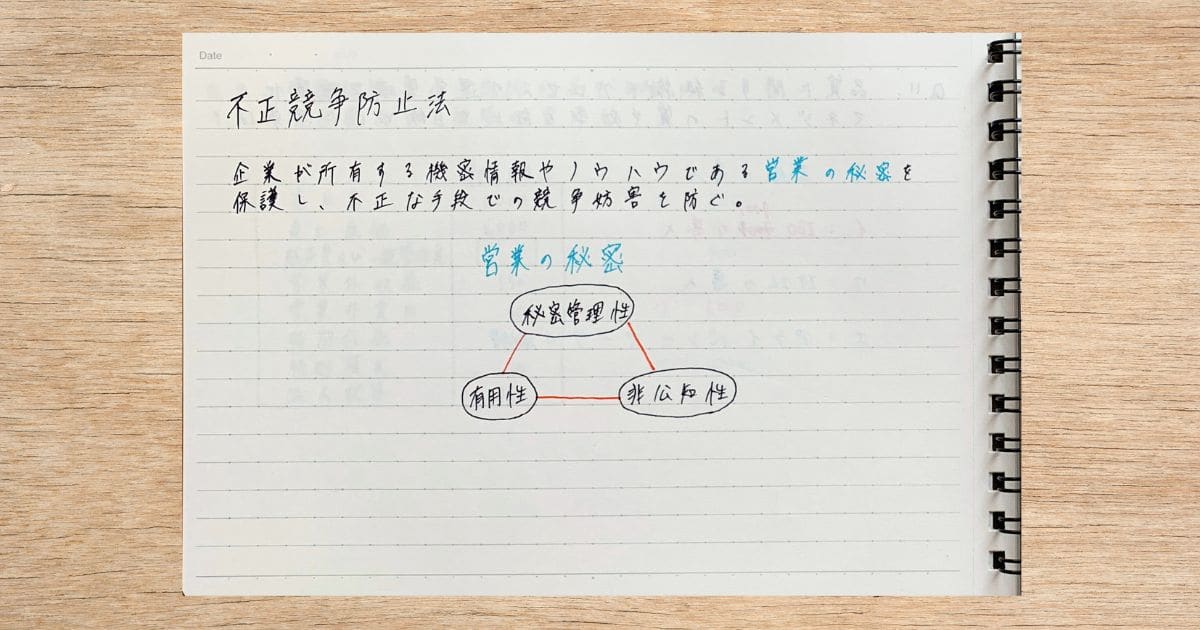 Date
不正競争防止法
企業が所有する機密情報やノウハウである営業の秘密を
保護し、不正な手段での競争妨害を防ぐ。
営業の秘密
秘密管理性
有用性
非公知性